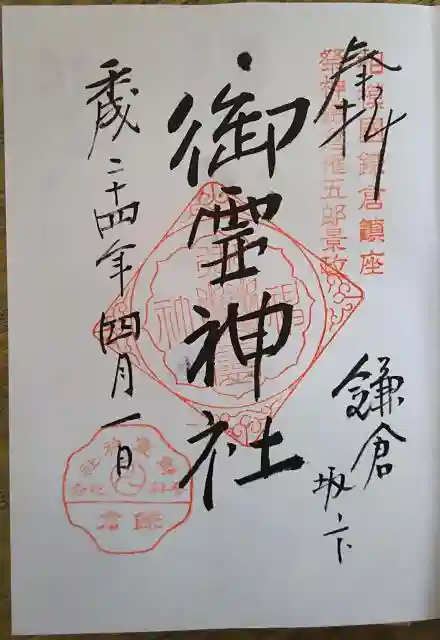 奉拝
相模国鎌倉鎮座
祭神鎌倉権五郎景政
鎌倉
坂ノ下
御霊神社
平成二十四年四月一日
鎌倉